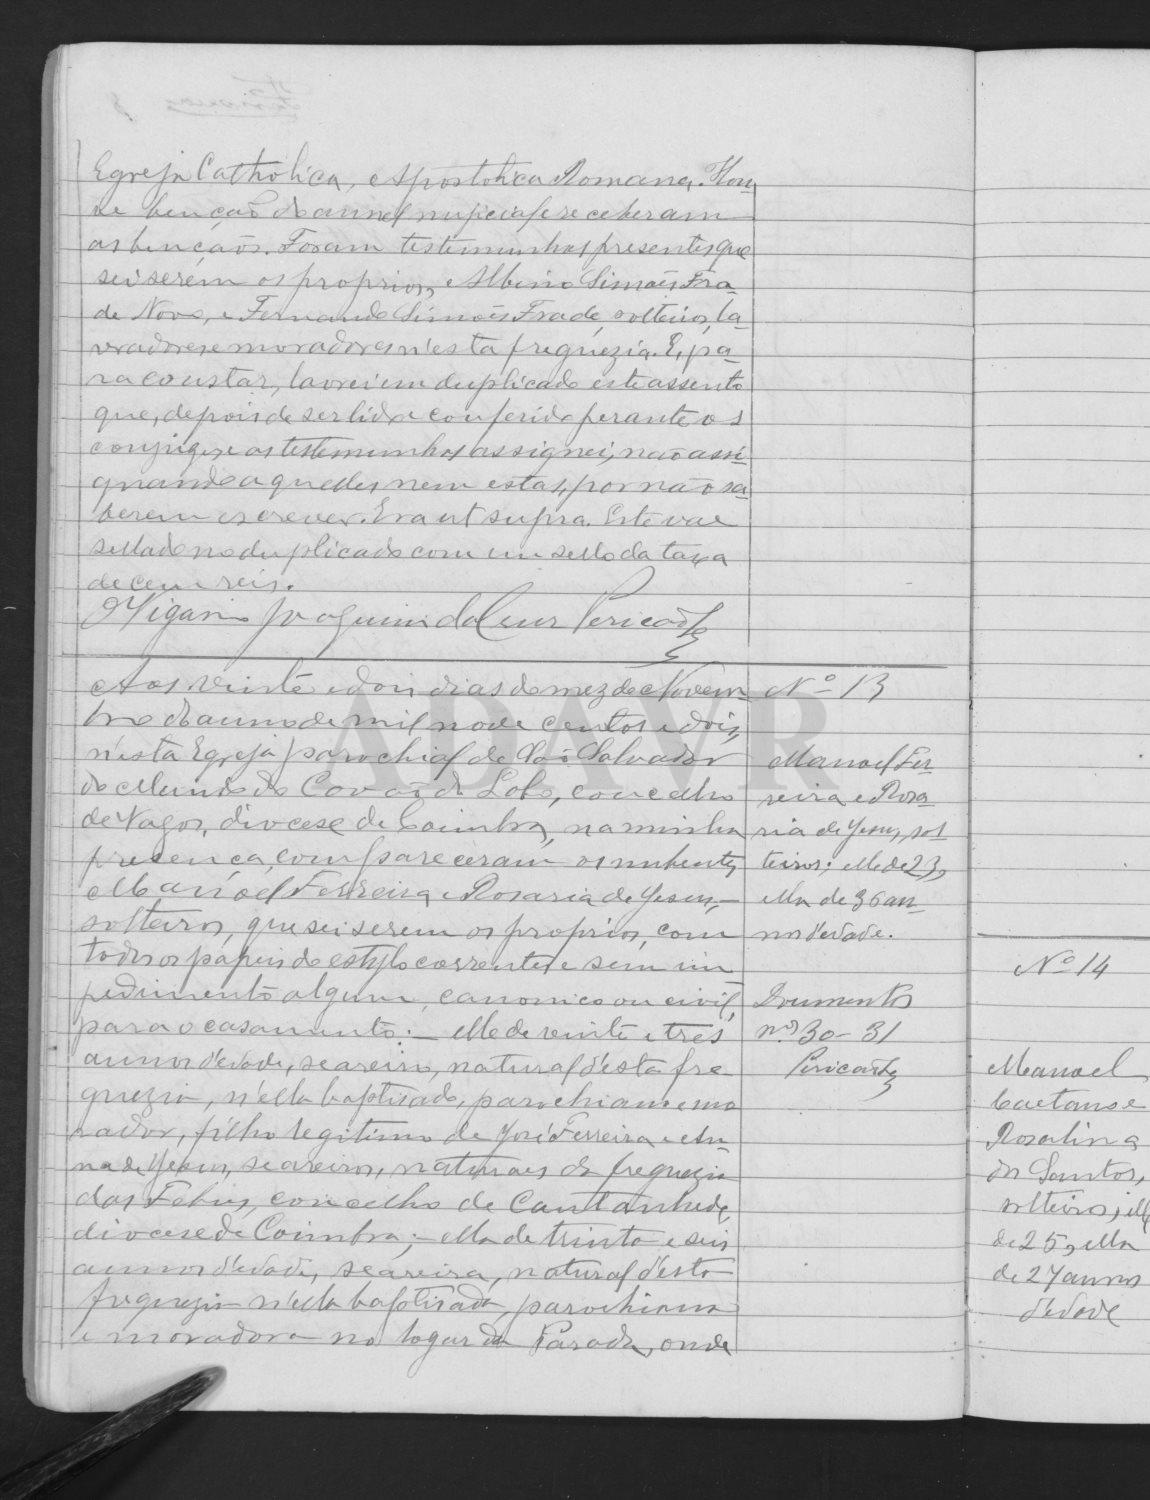 Egreja Catholica, Apostolica Romana. Hou
ve benção do annel nupcial e receberam
as bençãos. Foram testemunhas presentes que
sei serem os proprios, Albino Simões Fra-
de Novo, e Fernando Simões Frade, solteiros, la-
vradores e moradores n'esta freguezia. E, pa-
ra constar, lavrei em duplicado este assento
que, depois de ser lido e conferido perante os
conjuges e as testemunhas assignei, não assi-
gnando aquelles nem estas, por não sa-
berem escrever. Era ut supra. Este vae
sellado no duplicado com um sello da taxa
de cem reis.
O Vigario Joaquim da Cruz Pericão
Aos vinte e dois dias do mez de Novem
bro do anno de mil nove centos e dois,
n'esta Egreja parochial de São Salvador
do Mundo de Covão do Lobo, concelho
de Vagos, diocese de Coimbra, na minha
presença, compareceram os nubentes
Manoel Ferreira e Rosaria de Jesus,
solteiros, que sei serem os proprios, com
todos os papeis do estylo correntes e sem im
pedimento algum, canonico ou civil,
para o casamento: — elle de vinte e tres
annos d'edade, seareiro, natural d'esta fre
guezia, n'ella baptisado, parochiano e mo
rador, filho legitimo de José Ferreira e An
na de Jesus, seareiros, naturaes da freguezia
das Febres, concelho de Cantanhede,
diocese de Coimbra; — ella de trinta e seis
annos d'edade, seareira, natural d'esta
freguezia n'ella baptisada, parochiana
e moradora no logar da Parada, onde
Nº 13
Manoel Fer-
reira e Rosa-
ria de Jesus, sol
teiros; elle de 23,
ella de 36 an-
nos d'edade.
Documentos
nos 30-31
Pericão
Nº 14
Manoel
Caetano e
Rosalina
dos Santos,
solteiros; elle
de 25, ella
de 27 annos
d'edade
ADAVR